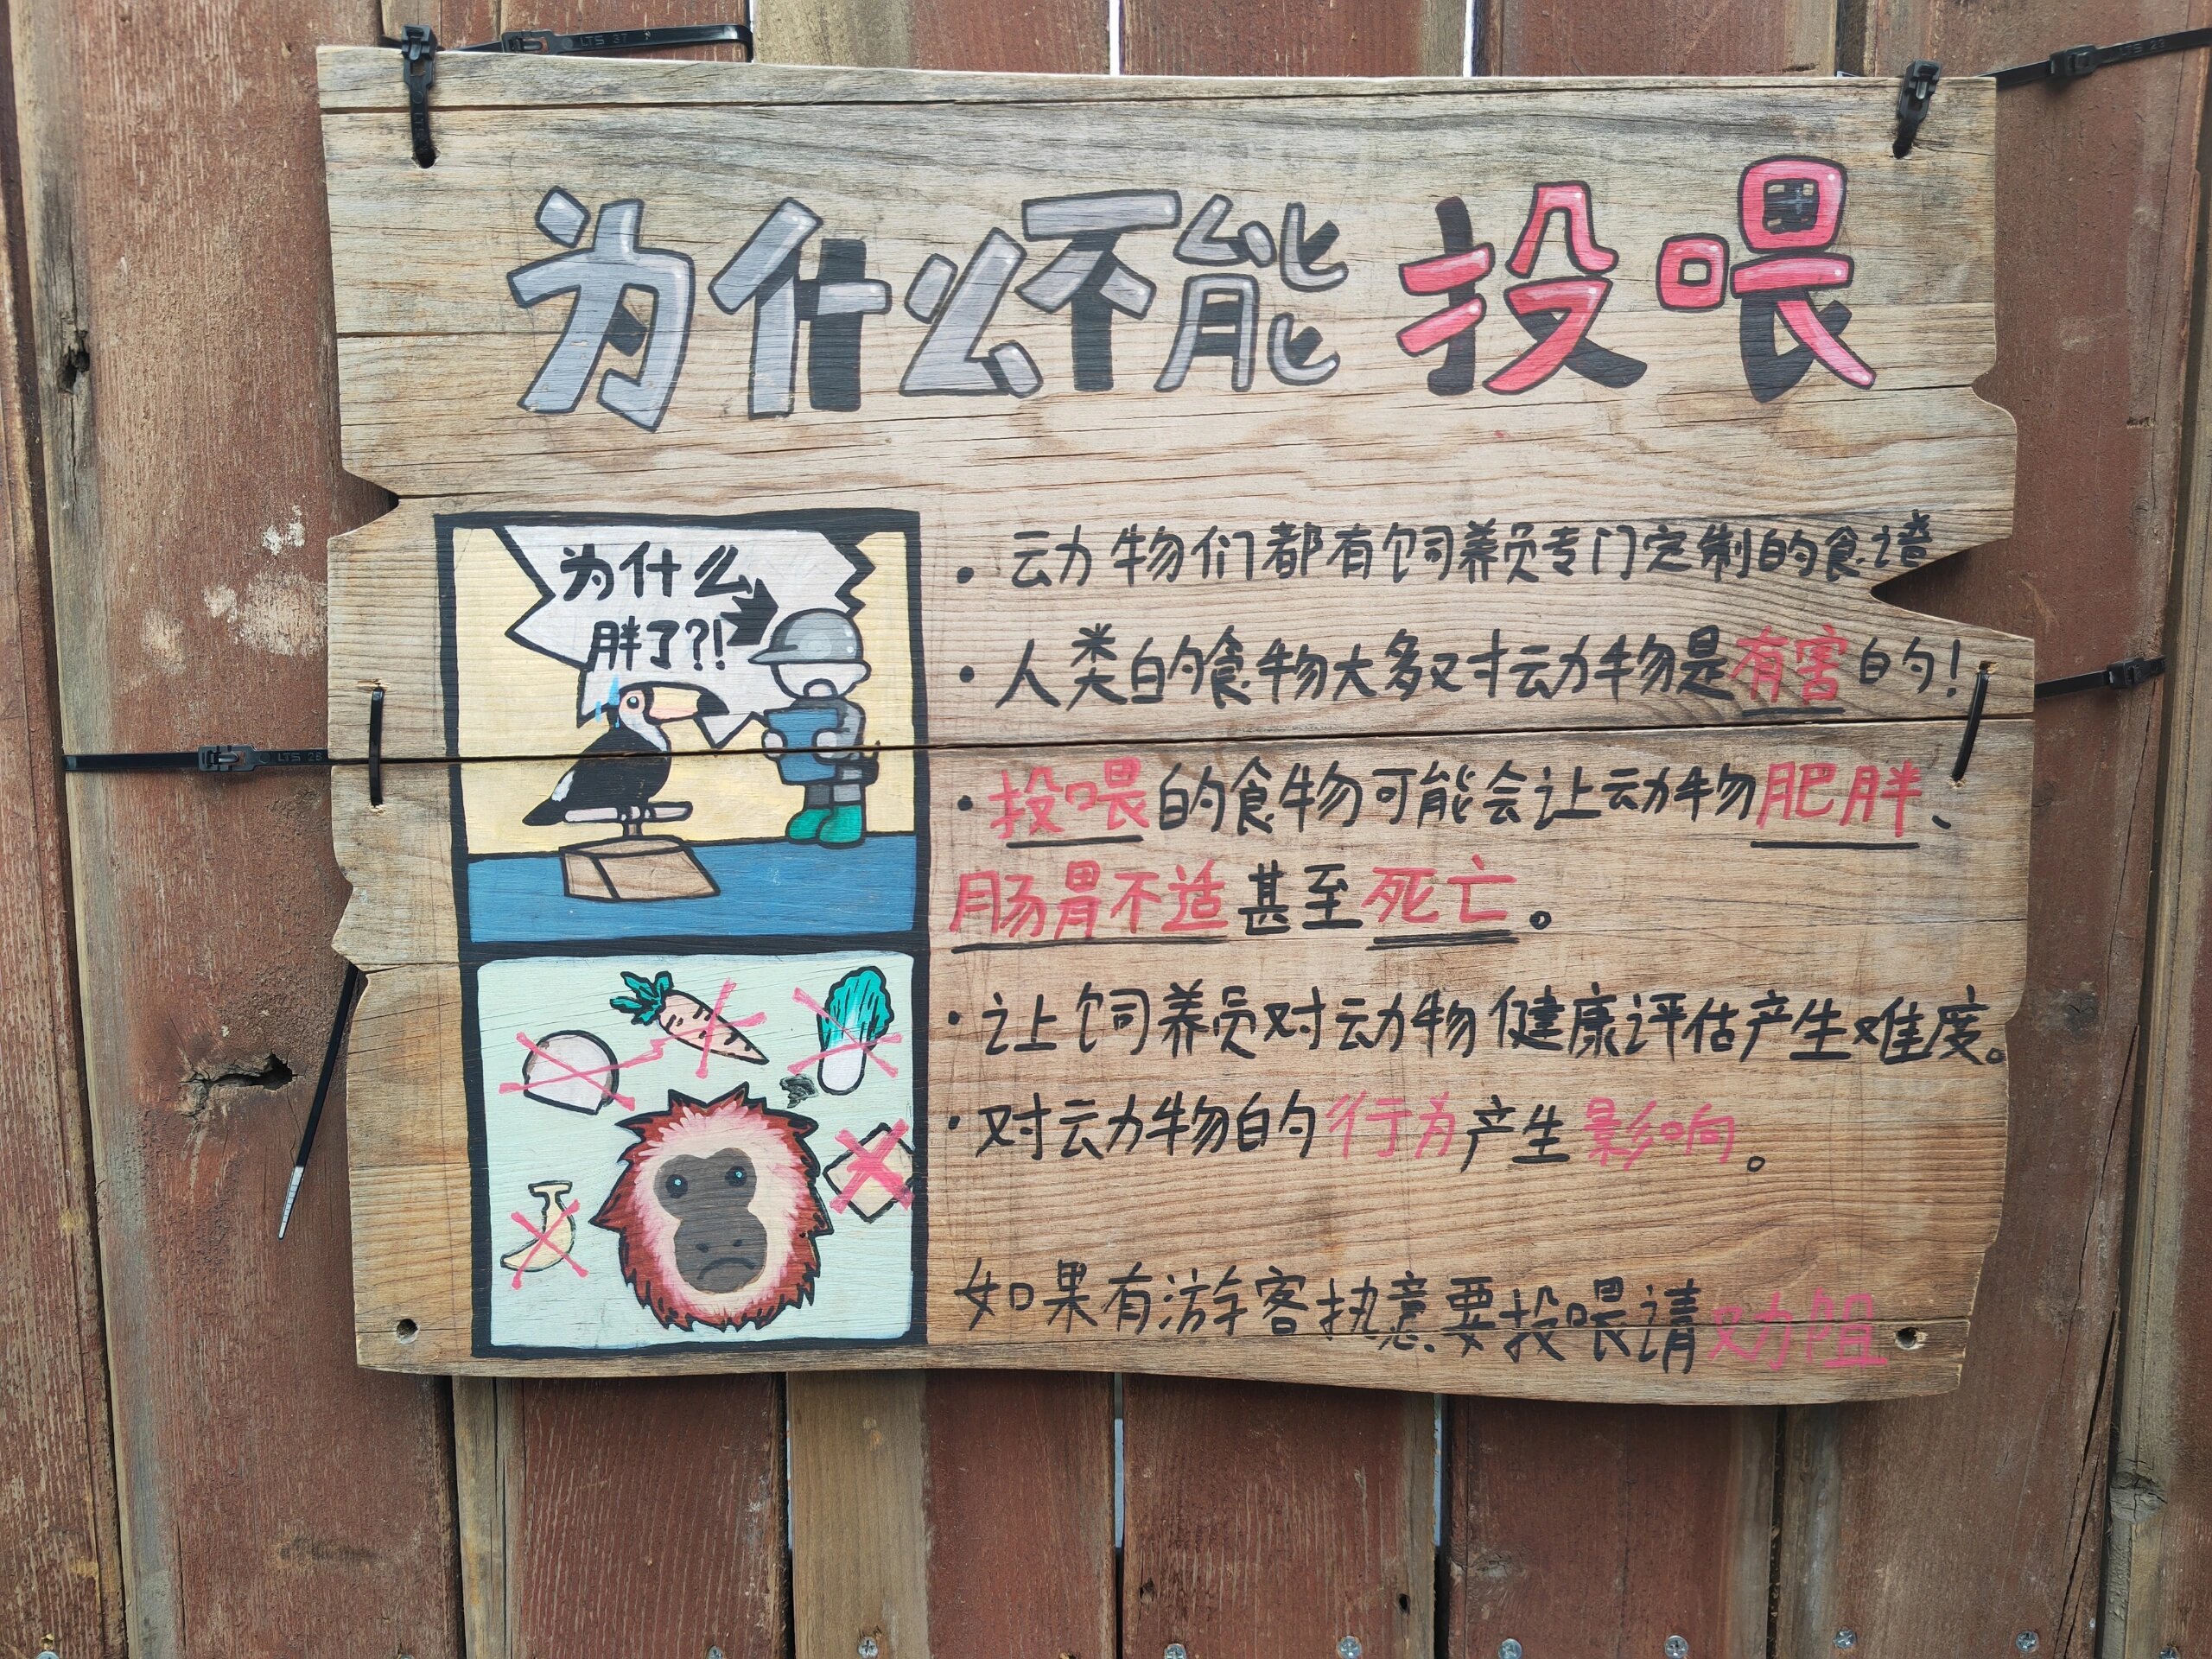 为什么不能投喂
为什么
胖了?!
· 动物们都有饲养员专门定制的食谱
· 人类的食物大多对动物是有害的!
· 投喂的食物可能会让动物肥胖、
肠胃不适甚至死亡。
· 让饲养员对动物健康评估产生难度。
· 对动物的行为产生影响。
如果有游客执意要投喂请劝阻
LTS 37
LTS 28